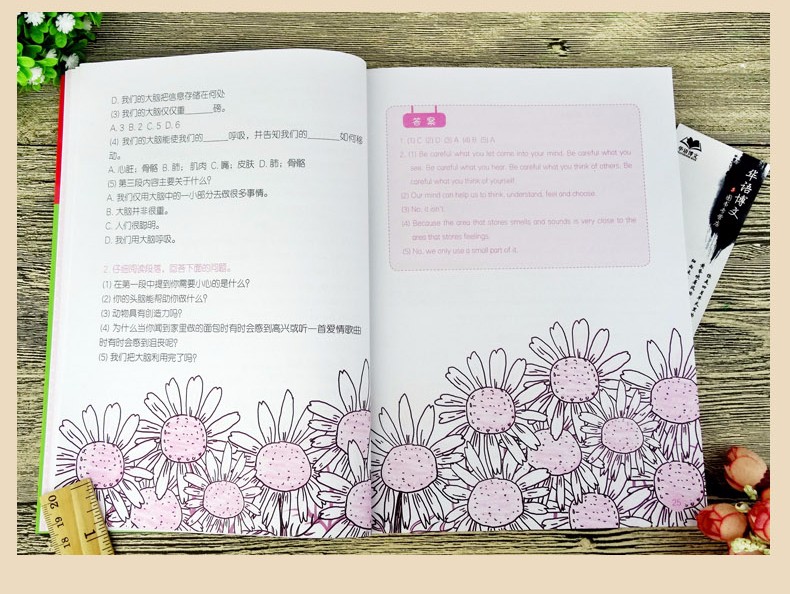 D. 我们的大脑把信息存储在何处
(3) 我们的大脑仅仅重______磅。
A. 3 B. 2 C. 5 D. 6
(4) 我们的大脑能使我们的_____呼吸，并告知我们的_______如何移
动。
A. 心脏；骨骼 B. 肺； 肌肉 C. 嘴；皮肤 D. 肺；骨骼
(5) 第三段内容主要关于什么？
A. 我们仅用大脑中的一小部分去做很多事情。
B. 大脑并非很重。
C. 人们很聪明。
D. 我们用大脑呼吸。
2. 仔细阅读段落，回答下面的问题。
(1) 在第一段中提到你需要小心的是什么？
(2) 你的头脑能帮助你做什么？
(3) 动物具有创造力吗？
(4) 为什么当你闻到家里做的面包时有时会感到高兴或听一首爱情歌曲
时有时会感到沮丧呢？
(5) 我们把大脑利用完了吗？
答案
1. (1) C (2) D (3) A (4) B (5) A
2. (1) Be careful what you let come into your mind. Be careful what you
see. Be careful what you hear. Be careful what you think of others. Be
careful what you think of yourself.
(2) Our mind can help us to think, understand, feel and choose.
(3) No, it isn't.
(4) Because the area that stores smells and sounds is very close to the
area that stores feelings.
(5) No, we only use a small part of it.
华语博文
华语博文
图书专营店
20
19
18
1